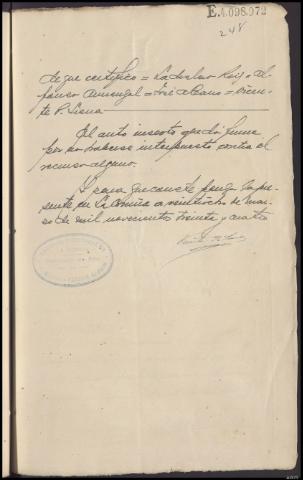 E.4.098.972
248
de que certifico = Ladislao Roig = Al-
fonso Armengol = José Alcano = Vicen-
te P. Sierra
El auto inserto quedó firme
por no haberse interpuesto contra el
recurso alguno.
Y para que conste pongo la pre-
sente en La Coruña a veintiocho de mar-
zo de mil novecientos treinta y cuatro